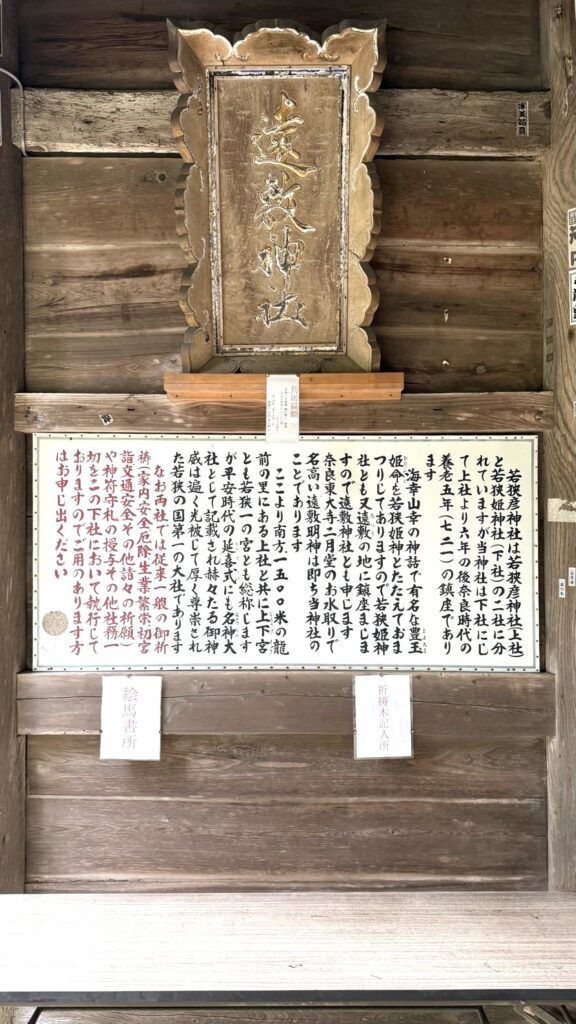 遠敷神社
若狭彦神社は若狭彦神社(上社)
と若狭姫神社(下社)の二社に分
れていますが当神社は下社にし
て上社より六年の後奈良時代の
養老五年(七二一)の鎮座であり
ます
海幸山幸の神話で有名な豊玉
姫命を若狭姫神とたたえておま
つりしてありますので若狭姫神
社とも又遠敷の地に鎮座まします
ので遠敷神社とも申します
奈良東大寺二月堂のお水取りで
名高い遠敷明神は即ち当神社の
ことであります
ここより南方一五〇〇米の龍
前の里にある上社と共に上下宮
とも若狭一の宮とも総称します
が平安時代の延喜式にも名神大
社として記載され赫々たる御神
威は遍く光被して厚く尊崇され
た若狭の国第一の大社であります
なお両社では従来一般の御祈
祷(家内安全厄除生業繁栄初宮
詣交通安全その他諸々の祈願)
や神符守札の授与その他社務一
切をこの下社において執行して
おりますのでご用のあります方
はお申し出ください
祈祷木記入所
絵馬書所